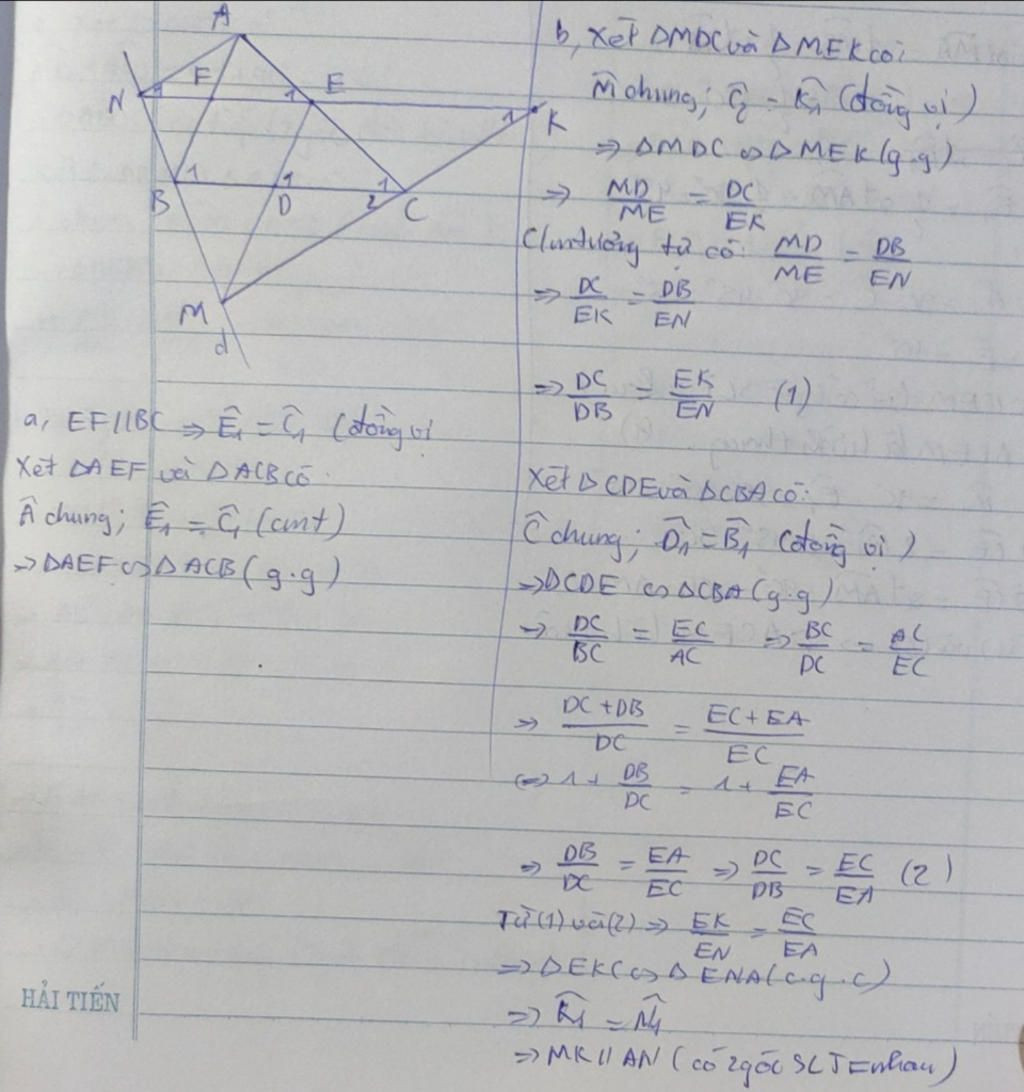 A
N 1 F 1 E
1 K
B 1 D 1 1 2 C
M
d
a, EF//BC ⇒ Ê₁ = Ĉ₁ (đồng vị
Xét ΔAEF và ΔACB có
 chung; Ê₁ = Ĉ₁ (cmt)
⇒ ΔAEF ∽ ΔACB (g.g)
HẢI TIẾN
b, Xét ΔMDC và ΔMEK có:
M̂ chung; Ĉ₂ = K̂₁ (đồng vị)
⇒ ΔMDC ∽ ΔMEK (g.g)
⇒ MD/ME = DC/EK
C/m tương tự có: MD/ME = DB/EN
⇒ DC/EK = DB/EN
⇒ DC/DB = EK/EN (1)
Xét ΔCDE và ΔCBA có:
Ĉ chung; D̂₁ = B̂₁ (đồng vị)
⇒ ΔCDE ∽ ΔCBA (g.g)
⇒ DC/BC = EC/AC ⇒ BC/DC = AC/EC
⇒ (DC + DB)/DC = (EC + EA)/EC
⇔ 1 + DB/DC = 1 + EA/EC
⇒ DB/DC = EA/EC ⇒ DC/DB = EC/EA (2)
Từ (1) và (2) ⇒ EK/EN = EC/EA
⇒ ΔEKC ∽ ΔENA (c.g.c)
⇒ K̂₁ = N̂₁
⇒ MK // AN (có 2 góc SLT = nhau)